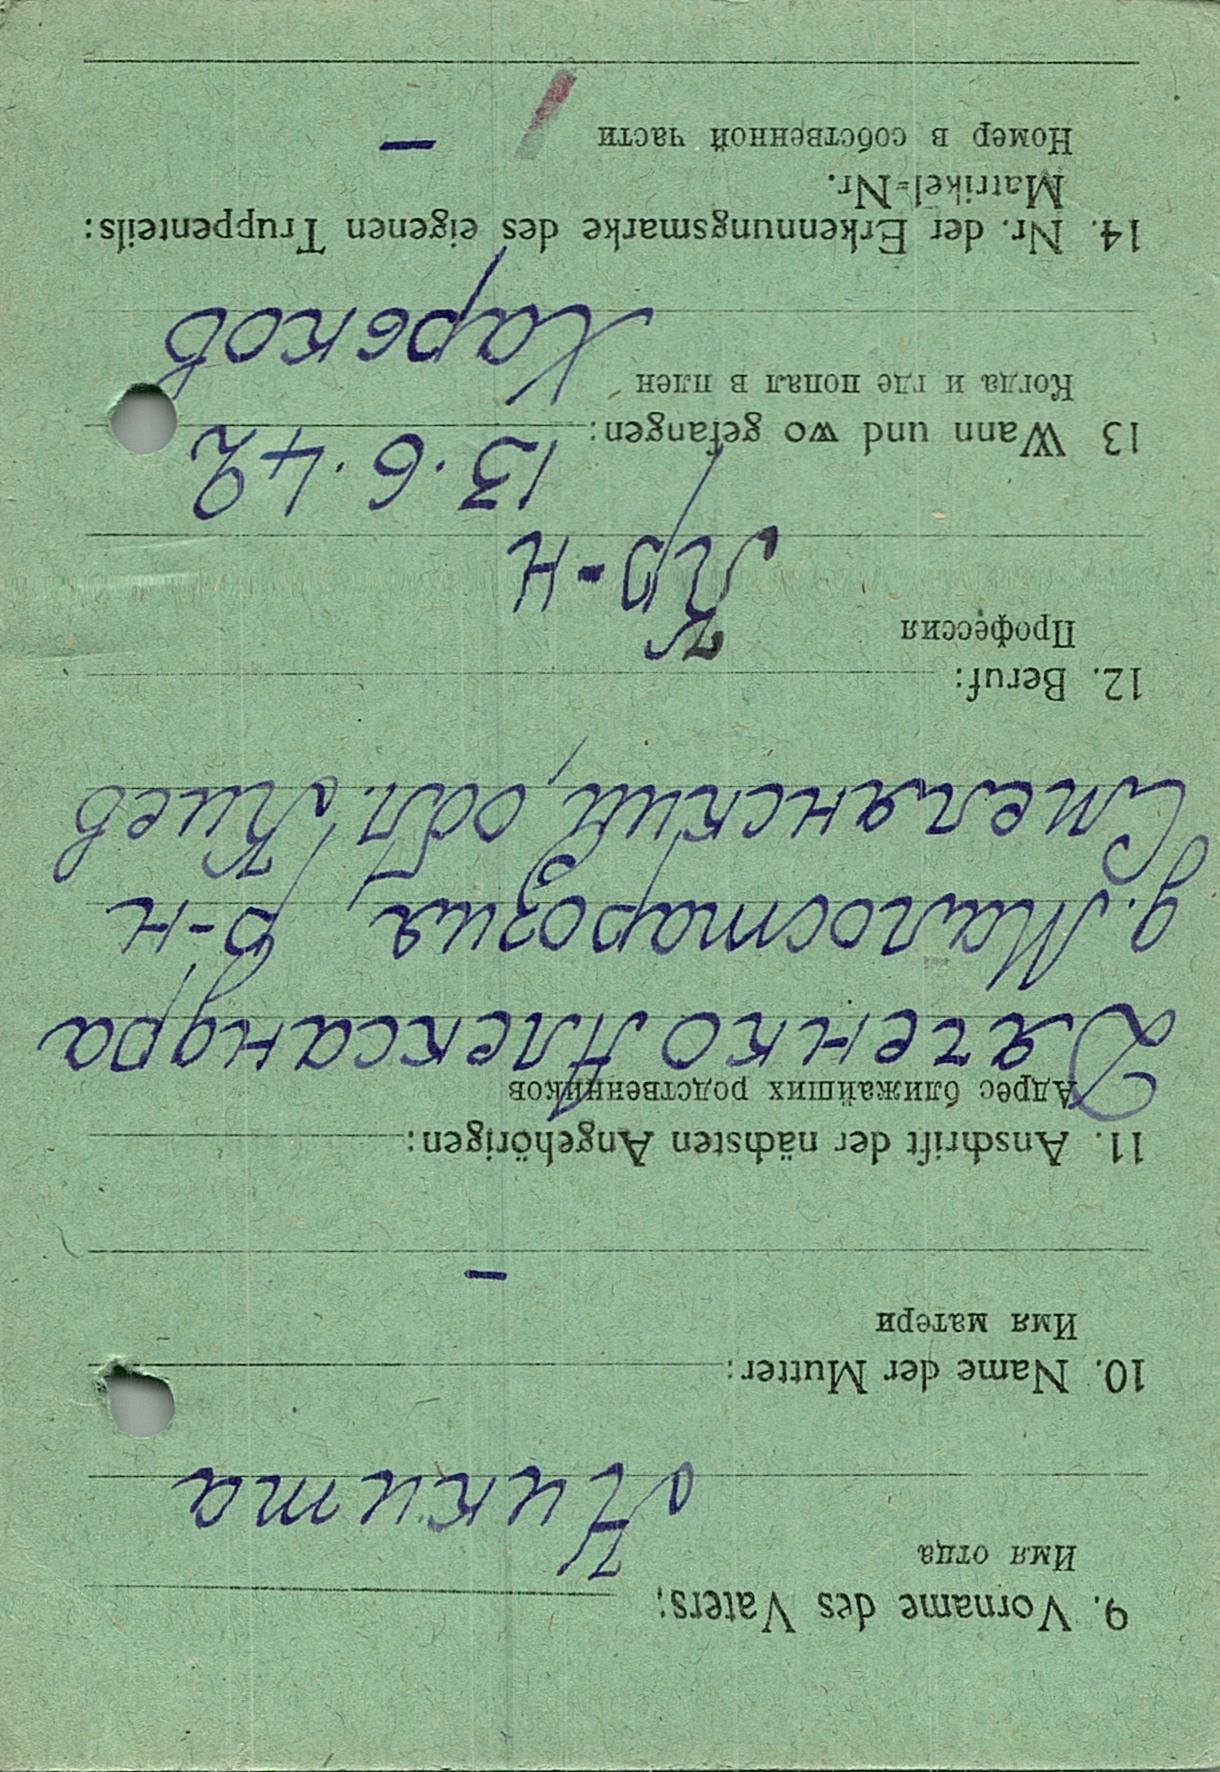 9. Vorname des Vaters:
Имя отца
Никита
10. Name der Mutter:
Имя матери
–
11. Anschrift der nächsten Angehörigen:
Адрес ближайших родственников
Дяченко Александра
д. Малостарозия, р-н
Смелянский, обл. Киев
12. Beruf:
Профессия
Кр-н
13 Wann und wo gefangen:
13.6.42
Когда и где попал в плен
Харьков
14. Nr. der Erkennungsmarke des eigenen Truppenteils:
Matrikel-Nr.
Номер в собственной части
–